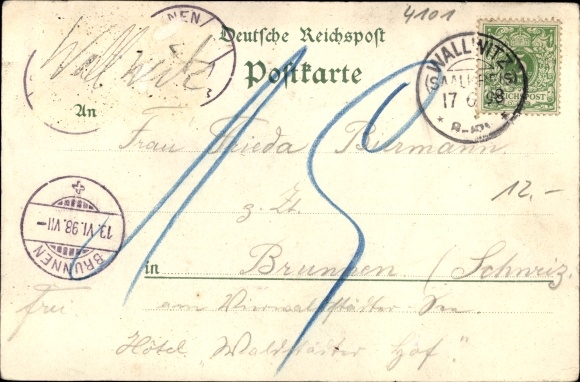 4101
Wallwitz
NNEN
Deutsche Reichspost
Postkarte
WALLWITZ
(SAALKREIS)
17 6 98
REICHSPOST
An
Frau Frieda Biermann
12.-
z. Zt.
BRUNNEN
13.VI.98.VII-
15
in Brunnen (Schweiz.
frei
am Vierwaldstädter See
Hôtel "Waldstädter Hof".